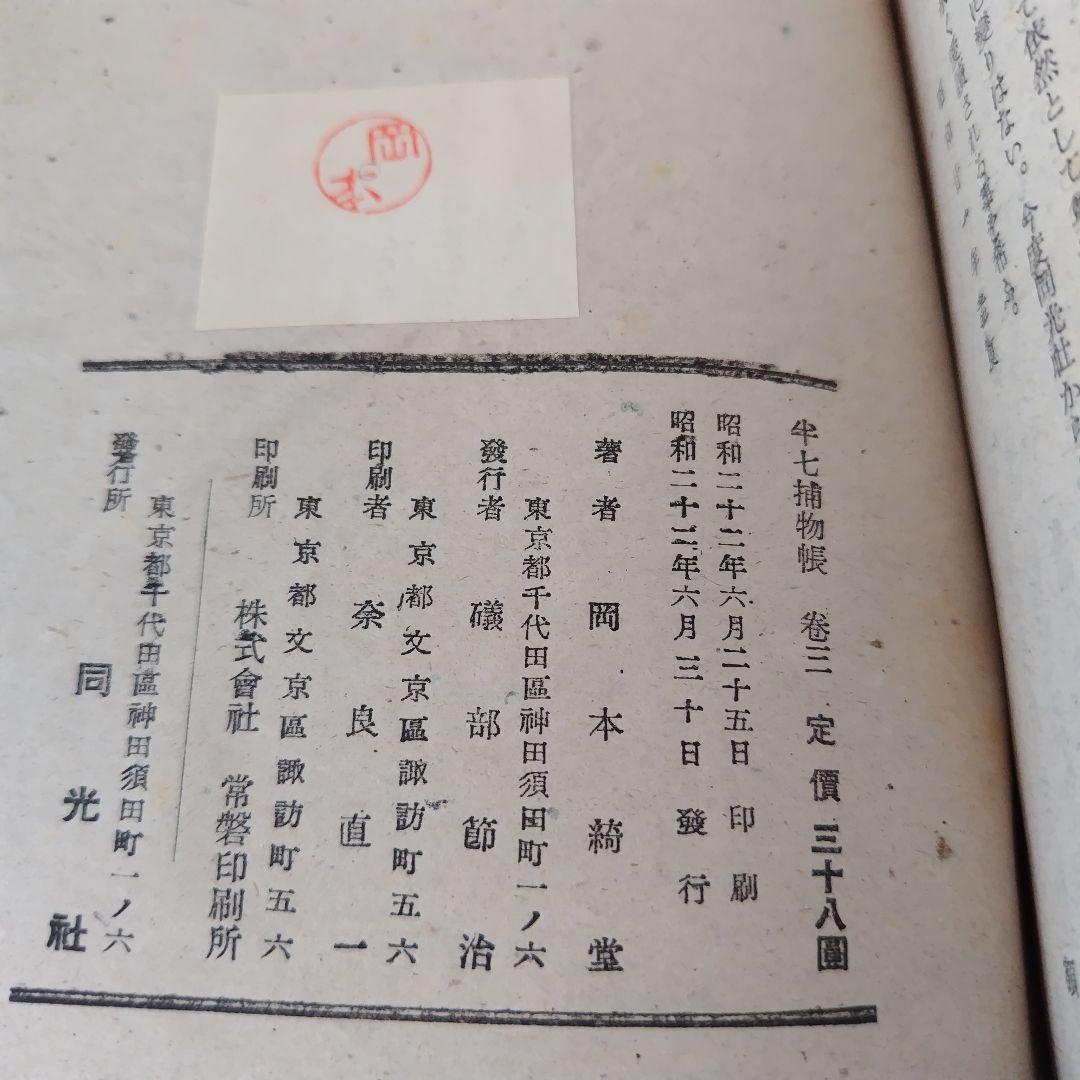 て依然として
は變りはない。今度同光社か
岡本
半七捕物帳 卷三 定價三十八圓
昭和二十二年六月二十五日 印刷
昭和二十二年六月三十日 發行
著者 岡本綺堂
東京都千代田區神田須田町一ノ六
發行者 礒部節治
東京都文京區諏訪町五六
印刷者 奈良直一
東京都文京區諏訪町五六
印刷所 株式會社 常磐印刷所
東京都千代田區神田須田町一ノ六
發行所 同光社